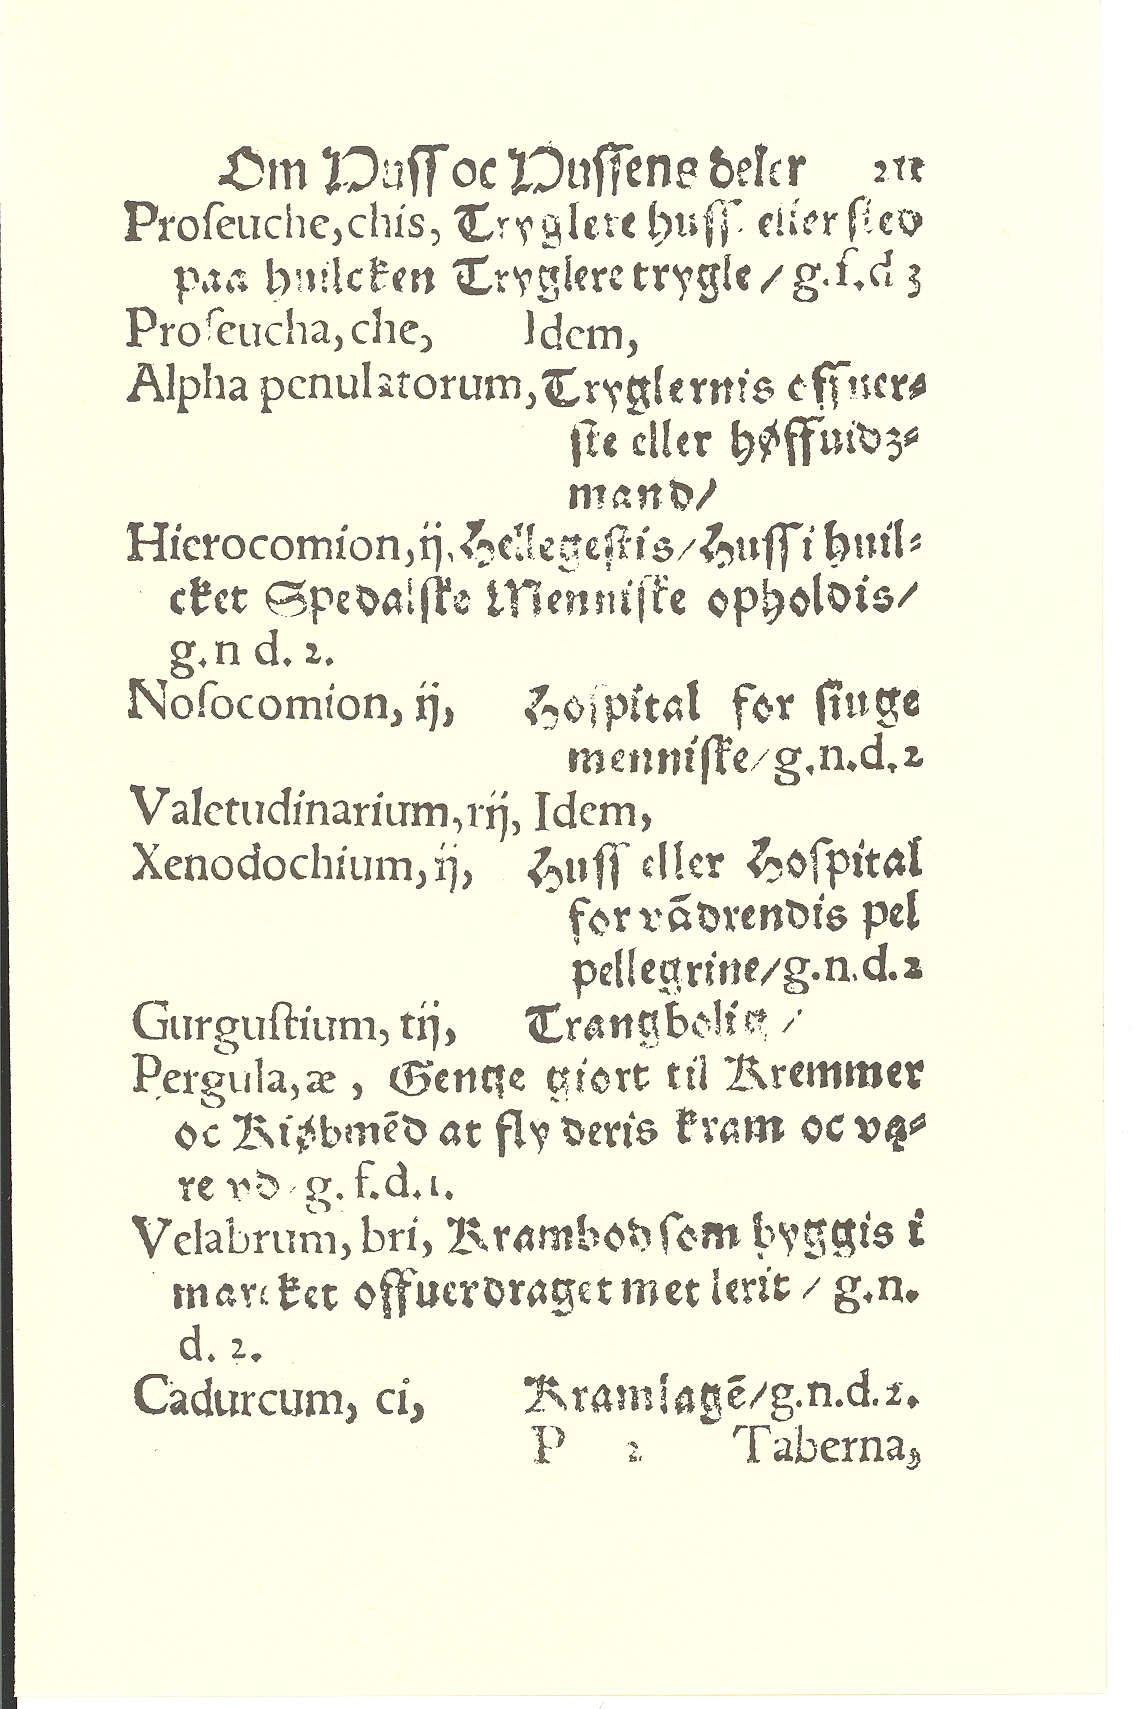 Om Huss oc Hussens deler
Proſeuche, chis, Tryglere huſſ eller ſted
paa huilcken Tryglere trygle / g.f.d 3
Proſeucha, che, Idem,
Alpha penulatorum, Tryglernis offuer⸗
ſte eller høffuidz⸗
mand /
Hierocomion, ij, Hellegeſtis / Huſſ i huil⸗
cket Spedalſke Menniſke opholdis /
g.n d. 2.
Noſocomion, ij, Hoſpital for ſiuge
menniſke / g.n.d.2
Valetudinarium, rij, Idem,
Xenodochium, ij, Huſſ eller Hoſpital
for vādrendis pel
pellegrine / g.n.d.2
Gurguſtium, tij, Trangbolig /
Pergula, æ, Gentge giort til Kremmer
oc Kiøbmēd at fly deris kram oc va⸗
re vd / g. f.d.1.
Velabrum, bri, Krambod ſom byggis i
marcket offuerdraget met lerit / g.n.
d. 2.
Cadurcum, ci, Kramlagē / g.n.d.2.
P 2 Taberna,